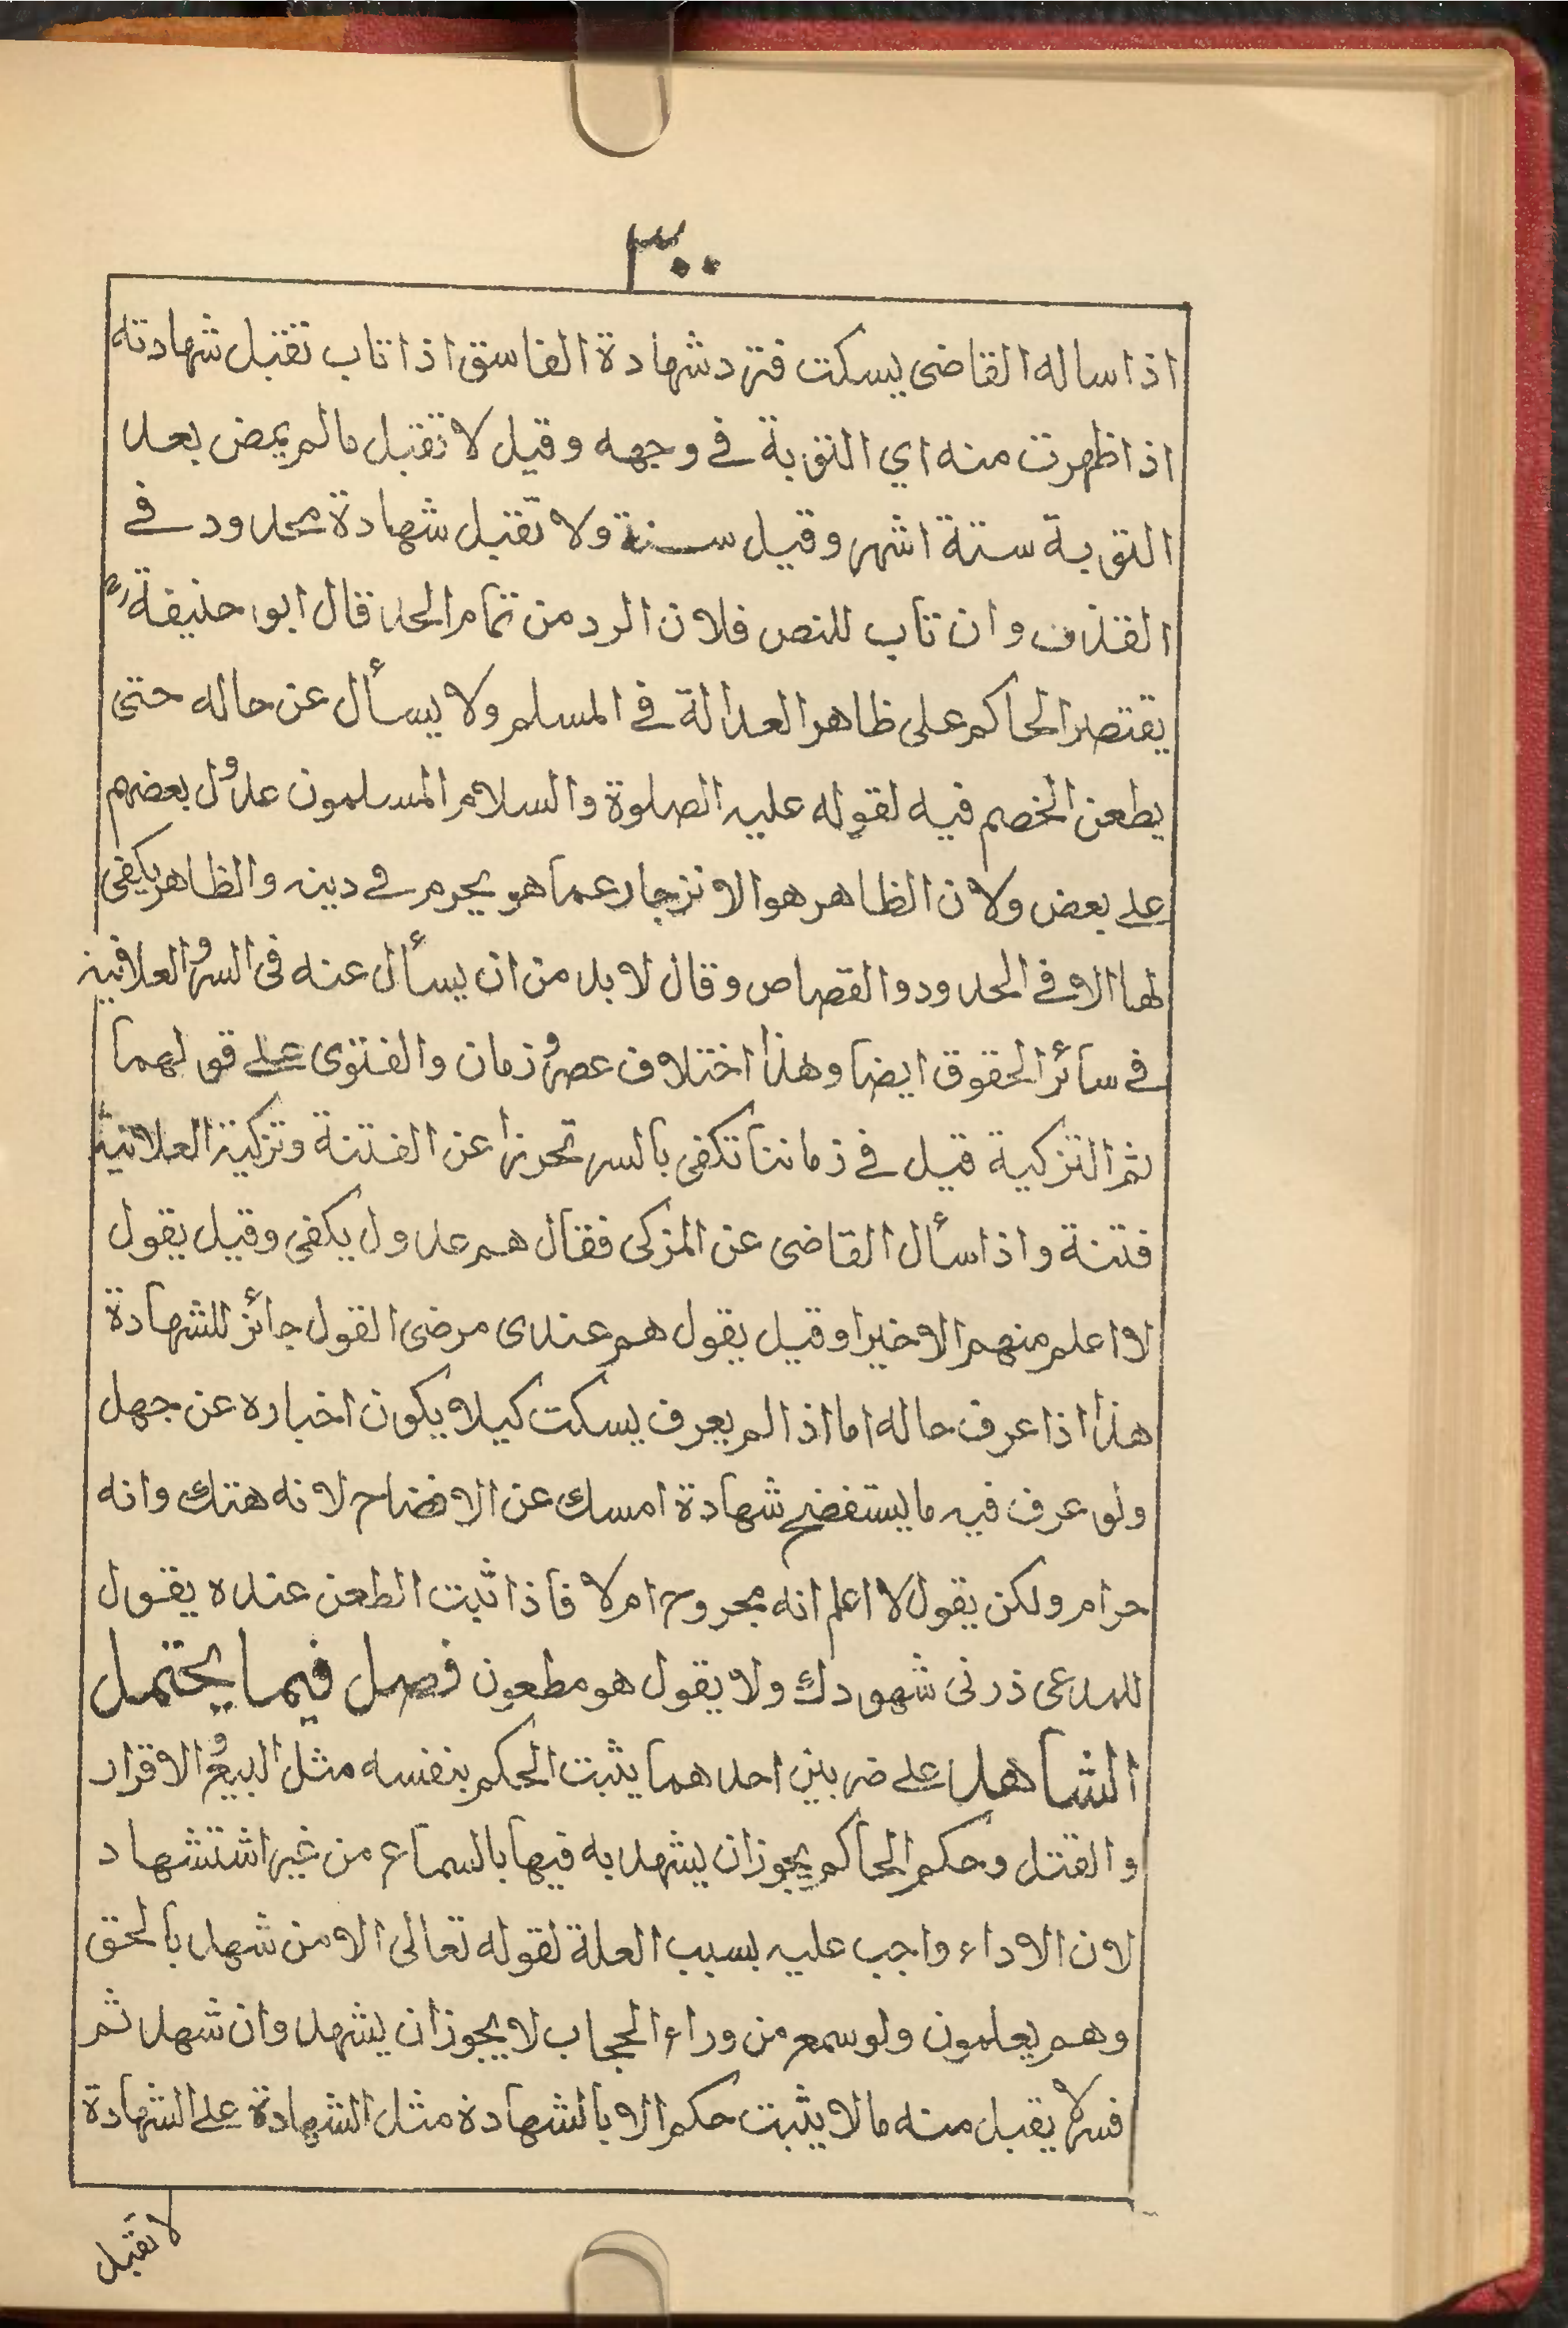 ٣٠٠
اذا ساله القاضى يسكت فترد شهادة الفاسق اذا تاب تقبل شهادته
اذا ظهرت منه اي التوبة في وجهه وقيل لا تقبل مالم يمض بعد
التوبة ستة اشهر وقيل سنة ولا تقبل شهادة محدود في
القذف وان تاب للنص فلان الرد من تمام الحد قال ابو حنيفة رح
يقتصر الحاكم على ظاهر العدالة في المسلم ولا يسأل عن حاله حتى
يطعن الخصم فيه لقوله عليه الصلوة والسلام المسلمون عدول بعضهم
على بعض ولان الظاهر هو الانزجار عما هو يحرم في دينه والظاهر يكفى
لها الا فى الحدود والقصاص وقال لا بد من ان يسأل عنه فى السر والعلانية
في سائر الحقوق ايضا وهذا اختلاف عصر وزمان والفتوى على قولهما
ثم التزكية قيل في زماننا تكفى بالسر تحرزا عن الفتنة وتزكية العلانية
فتنة واذا سأل القاضى عن المزكى فقال هم عدول يكفى وقيل يقول
لا اعلم منهم الا خيرا وقيل يقول هم عندى مرضى القول جائز للشهادة
هذا اذا عرف حاله اما اذا لم يعرف يسكت كيلا يكون اخباره عن جهل
ولو عرف فيه ما يستفضح شهادة امسك عن الافضاح لانه هتك وانه
حرام ولكن يقول لا اعلم انه مجروح ام لا فاذا ثبت الطعن عنده يقول
للمدعى زدنى شهودك ولا يقول هو مطعون فصل فيما يحتمل
الشاهد على ضربين احدهما يثبت الحكم بنفسه مثل البيع والاقرار
والقتل وحكم الحاكم يجوز ان يشهد به فيها بالسماع من غير اشتشهاد
لان الاداء واجب عليه بسبب العلة لقوله تعالى الا من شهد بالحق
وهم يعلمون ولو سمع من وراء الحجاب لا يجوز ان يشهد وان شهد ثم
فسر لا يقبل منه ما لا يثبت حكم الا بالشهادة مثل الشهادة على الشهادة
لا تقبل